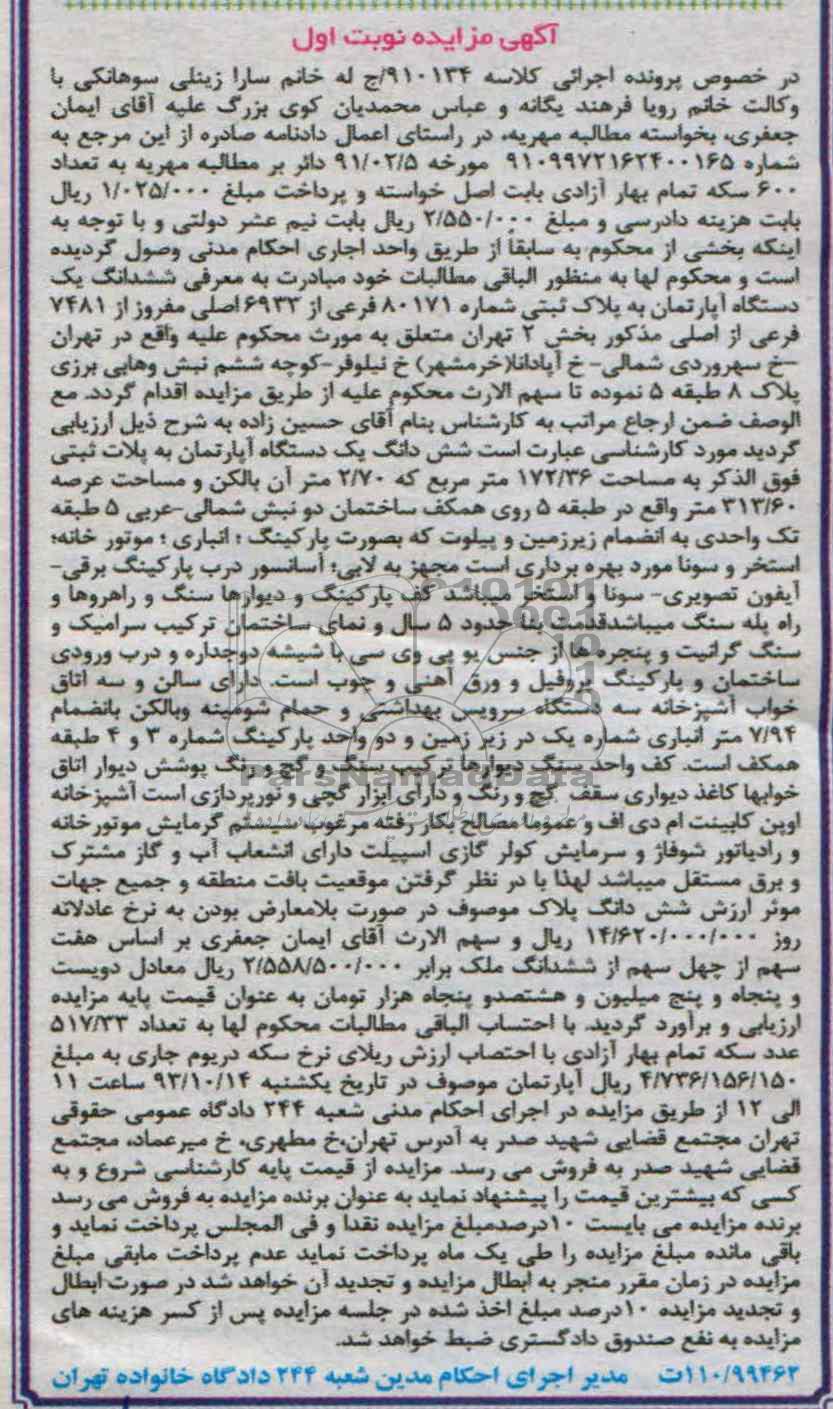 آگهی مزایده نوبت اول
در خصوص پرونده اجرائی کلاسه ۹۱۰۱۳۴/ج له خانم سارا زینلی سوهانکی با
وکالت خانم رویا فرهند یگانه و عباس محمدیان کوی بزرگ علیه آقای ایمان
جعفری، بخواسته مطالبه مهریه، در راستای اعمال دادنامه صادره از این مرجع به
شماره ۹۱۰۹۹۷۲۱۶۲۴۰۰۱۶۵ مورخه ۹۱/۰۲/۵ دائر بر مطالبه مهریه به تعداد
۶۰۰ سکه تمام بهار آزادی بابت اصل خواسته و پرداخت مبلغ ۱/۰۲۵/۰۰۰ ریال
بابت هزینه دادرسی و مبلغ ۲/۵۵۰/۰۰۰ ریال بابت نیم عشر دولتی و با توجه به
اینکه بخشی از محکوم به سابقاً از طریق واحد اجاری احکام مدنی وصول گردیده
است و محکوم لها به منظور الباقی مطالبات خود مبادرت به معرفی ششدانگ یک
دستگاه آپارتمان به پلاک ثبتی شماره ۸۰۱۷۱ فرعی از ۶۹۳۳ اصلی مفروز از ۷۴۸۱
فرعی از اصلی مذکور بخش ۲ تهران متعلق به مورث محکوم علیه واقع در تهران
-خ سهروردی شمالی- خ آپادانا(خرمشهر) خ نیلوفر-کوچه ششم نبش وهابی برزی
پلاک ۸ طبقه ۵ نموده تا سهم الارث محکوم علیه از طریق مزایده اقدام گردد. مع
الوصف ضمن ارجاع مراتب به کارشناس بنام آقای حسین زاده به شرح ذیل ارزیابی
گردید مورد کارشناسی عبارت است شش دانگ یک دستگاه آپارتمان به پلات ثبتی
فوق الذکر به مساحت ۱۷۲/۳۶ متر مربع که ۲/۷۰ متر آن بالکن و مساحت عرصه
۳۱۳/۶۰ متر واقع در طبقه ۵ روی همکف ساختمان دو نبش شمالی-غربی ۵ طبقه
تک واحدی به انضمام زیرزمین و پیلوت که بصورت پارکینگ ؛ انباری ؛ موتور خانه؛
استخر و سونا مورد بهره برداری است مجهز به لابی؛ آسانسور درب پارکینگ برقی-
آیفون تصویری- سونا و استخر میباشد کف پارکینگ و دیوارها سنگ و راهروها و
راه پله سنگ میباشدقدمت بنا حدود ۵ سال و نمای ساختمان ترکیب سرامیک و
سنگ گرانیت و پنجره ها از جنس یو پی وی سی با شیشه دوجداره و درب ورودی
ساختمان و پارکینگ پروفیل و ورق آهنی و چوب است. دارای سالن و سه اتاق
خواب آشپزخانه سه دستگاه سرویس بهداشتی و حمام شومینه وبالکن بانضمام
۷/۹۴ متر انباری شماره یک در زیر زمین و دو واحد پارکینگ شماره ۳ و ۴ طبقه
همکف است. کف واحد سنگ دیوارها ترکیب سنگ و گچ و رنگ پوشش دیوار اتاق
خوابها کاغذ دیواری سقف گچ و رنگ و دارای ابزار گچی و نورپردازی است آشپزخانه
اوپن کابینت ام دی اف و عموما مصالح بکار رفته مرغوب سیستم گرمایش موتورخانه
و رادیاتور شوفاژ و سرمایش کولر گازی اسپیلت دارای انشعاب آب و گاز مشترک
و برق مستقل میباشد لهذا با در نظر گرفتن موقعیت بافت منطقه و جمیع جهات
موثر ارزش شش دانگ پلاک موصوف در صورت بلامعارض بودن به نرخ عادلانه
روز ۱۴/۶۲۰/۰۰۰/۰۰۰ ریال و سهم الارث آقای ایمان جعفری بر اساس هفت
سهم از چهل سهم از ششدانگ ملک برابر ۲/۵۵۸/۵۰۰/۰۰۰ ریال معادل دویست
و پنجاه و پنج میلیون و هشتصدو پنجاه هزار تومان به عنوان قیمت پایه مزایده
ارزیابی و برآورد گردید. با احتساب الباقی مطالبات محکوم لها به تعداد ۵۱۷/۳۳
عدد سکه تمام بهار آزادی با احتصاب ارزش ریلای نرخ سکه دریوم جاری به مبلغ
۴/۷۳۶/۱۵۶/۱۵۰ ریال آپارتمان موصوف در تاریخ یکشنبه ۹۳/۱۰/۱۴ ساعت ۱۱
الی ۱۲ از طریق مزایده در اجرای احکام مدنی شعبه ۲۴۴ دادگاه عمومی حقوقی
تهران مجتمع قضایی شهید صدر به آدرس تهران،خ مطهری، خ میرعماد، مجتمع
قضایی شهید صدر به فروش می رسد. مزایده از قیمت پایه کارشناسی شروع و به
کسی که بیشترین قیمت را پیشنهاد نماید به عنوان برنده مزایده به فروش می رسد
برنده مزایده می بایست ۱۰درصدمبلغ مزایده نقدا و فی المجلس پرداخت نماید و
باقی مانده مبلغ مزایده را طی یک ماه پرداخت نماید عدم پرداخت مابقی مبلغ
مزایده در زمان مقرر منجر به ابطال مزایده و تجدید آن خواهد شد در صورت ابطال
و تجدید مزایده ۱۰درصد مبلغ اخذ شده در جلسه مزایده پس از کسر هزینه های
مزایده به نفع صندوق دادگستری ضبط خواهد شد.
۱۱۰/۹۹۴۶۲ت مدیر اجرای احکام مدین شعبه ۲۴۴ دادگاه خانواده تهران
ParsNamadData